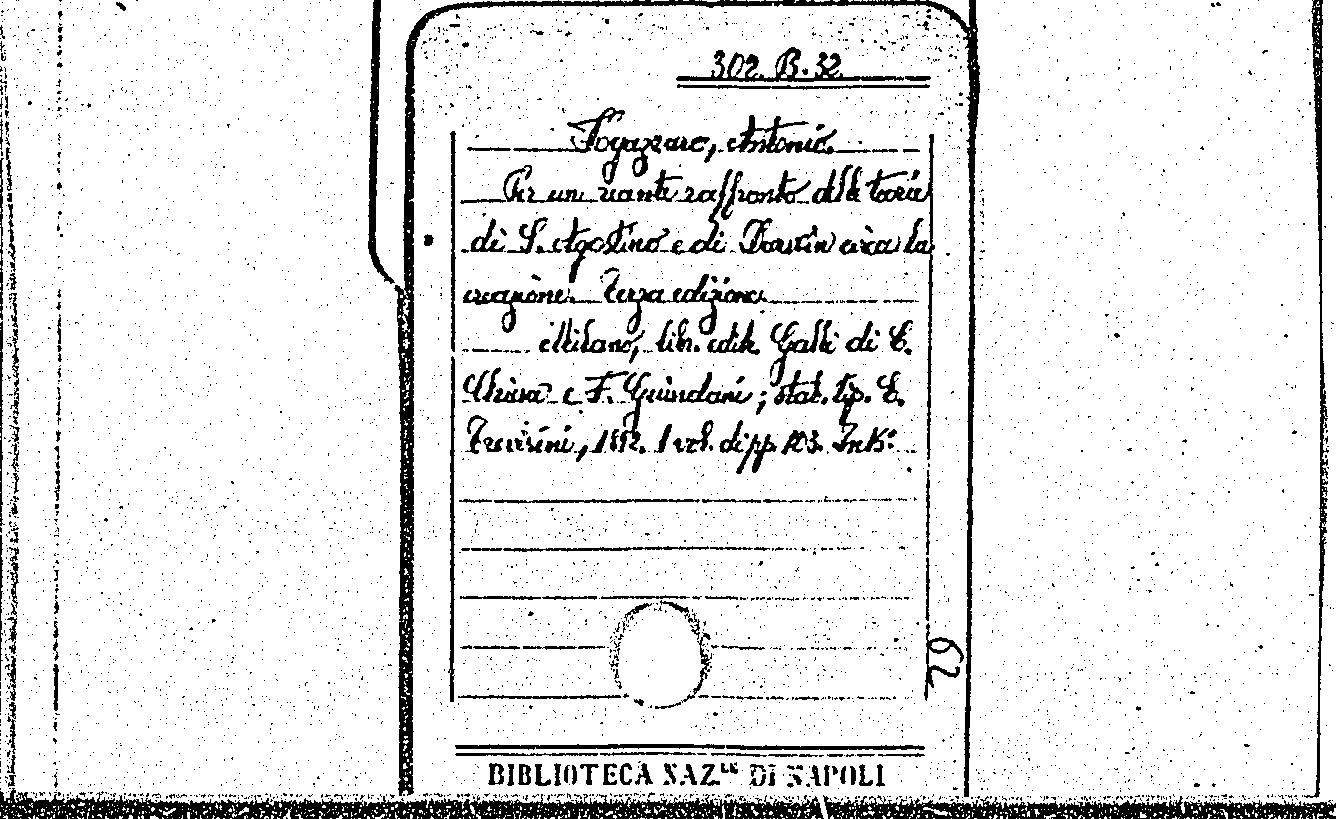 302. B. 32.
Fogazzaro, Antonio.
Per un recente raffronto delle teorie
di S. Agostino e di Darwin circa la
creazione. Terza edizione.
Milano, lib. edit. Galli di C.
Chiesa e F. Guindani; stab. tip. E.
Trevisini, 1892. 1 vol. di pp. 103. In 16º
62
BIBLIOTECA NAZ.LE DI NAPOLI